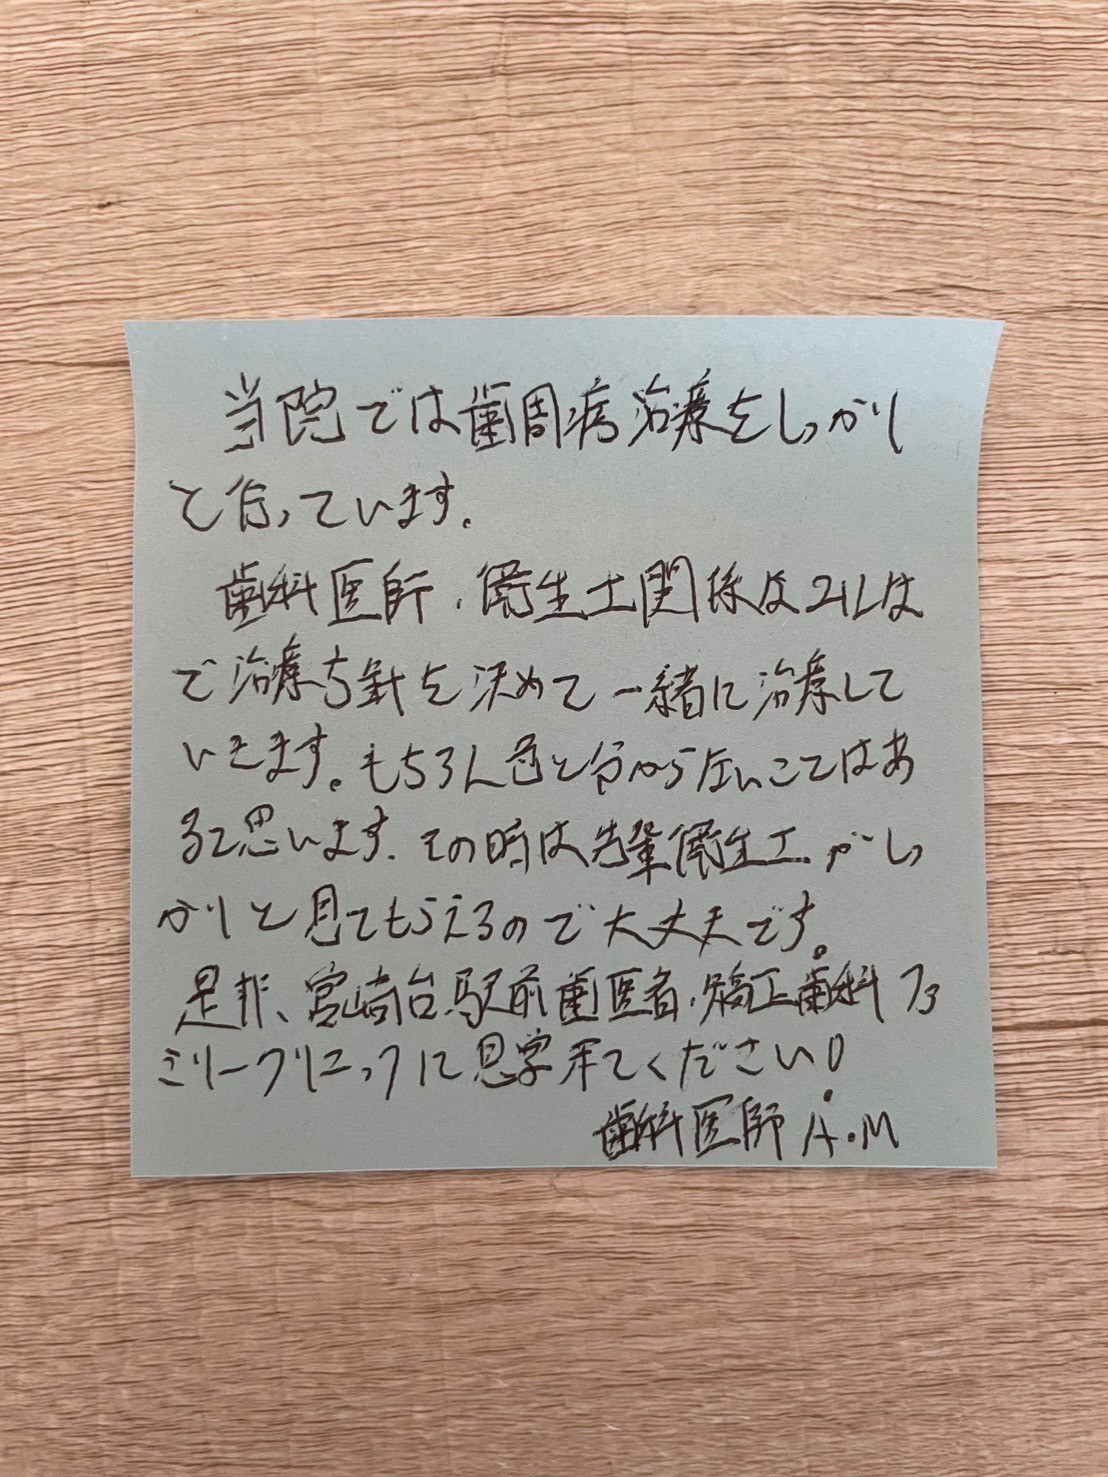 当院では歯周病治療をしっかり
と行っています。
歯科医師、衛生士関係はなしは
で治療方針を決めて一緒に治療して
いきます。もちろん色々分からないことはあ
ると思います。その時は先輩衛生士がしっ
かりと見てもらえるので大丈夫です。
是非、宮崎台駅前歯医者・矯正歯科ファ
ミリークリニックに見学来てください!
歯科医師 A.M